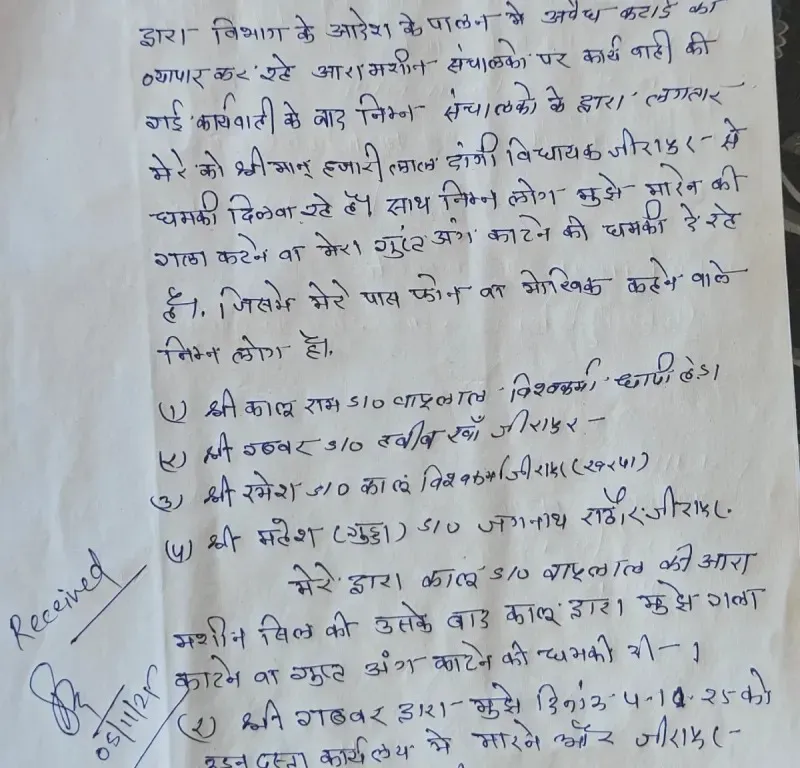 द्वारा विभाग के आदेश के पालन मे अवैध कटाई का
व्यापार कर रहे आरा मशीन संचालको पर कार्यवाही की
गई कार्यवाही के बाद निम्न संचालको के द्वारा लगातार
मेरे को श्रीमान् हजारी लाल दांगी विधायक जीरापुर - से
धमकी दिलवा रहे है। साथ निम्न लोग मुझे मारने की
गला काटने वा मेरा गुप्त अंग काटने की धमकी दे रहे
है। जिसमे मेरे पास फोन वा मोखिक कहने वाले
निम्न लोग है।
(1) श्री कालू राम S/O बापूलाल विश्वकर्मा धापी खेडा
(2) श्री गब्बर S/O हबीब खाँ जीरापुर -
(3) श्री रमेश S/O कालू विश्वकर्मा जीरापुर
(4) श्री महेश (गुड्डा) S/O जगन्नाथ राठौर जीरापुर.
मेरे द्वारा कालू S/O बापूलाल की आरा
मशीन सिल की उसके बाद कालू द्वारा मुझे गला
काटने वा गुप्त अंग काटने की धमकी दी - ।
(2) श्री गब्बर द्वारा - मुझे दिनांक 4-10-25 को
उडन दस्ता कार्यलय मे मारने और जीरापुर -
Received
05/11/25